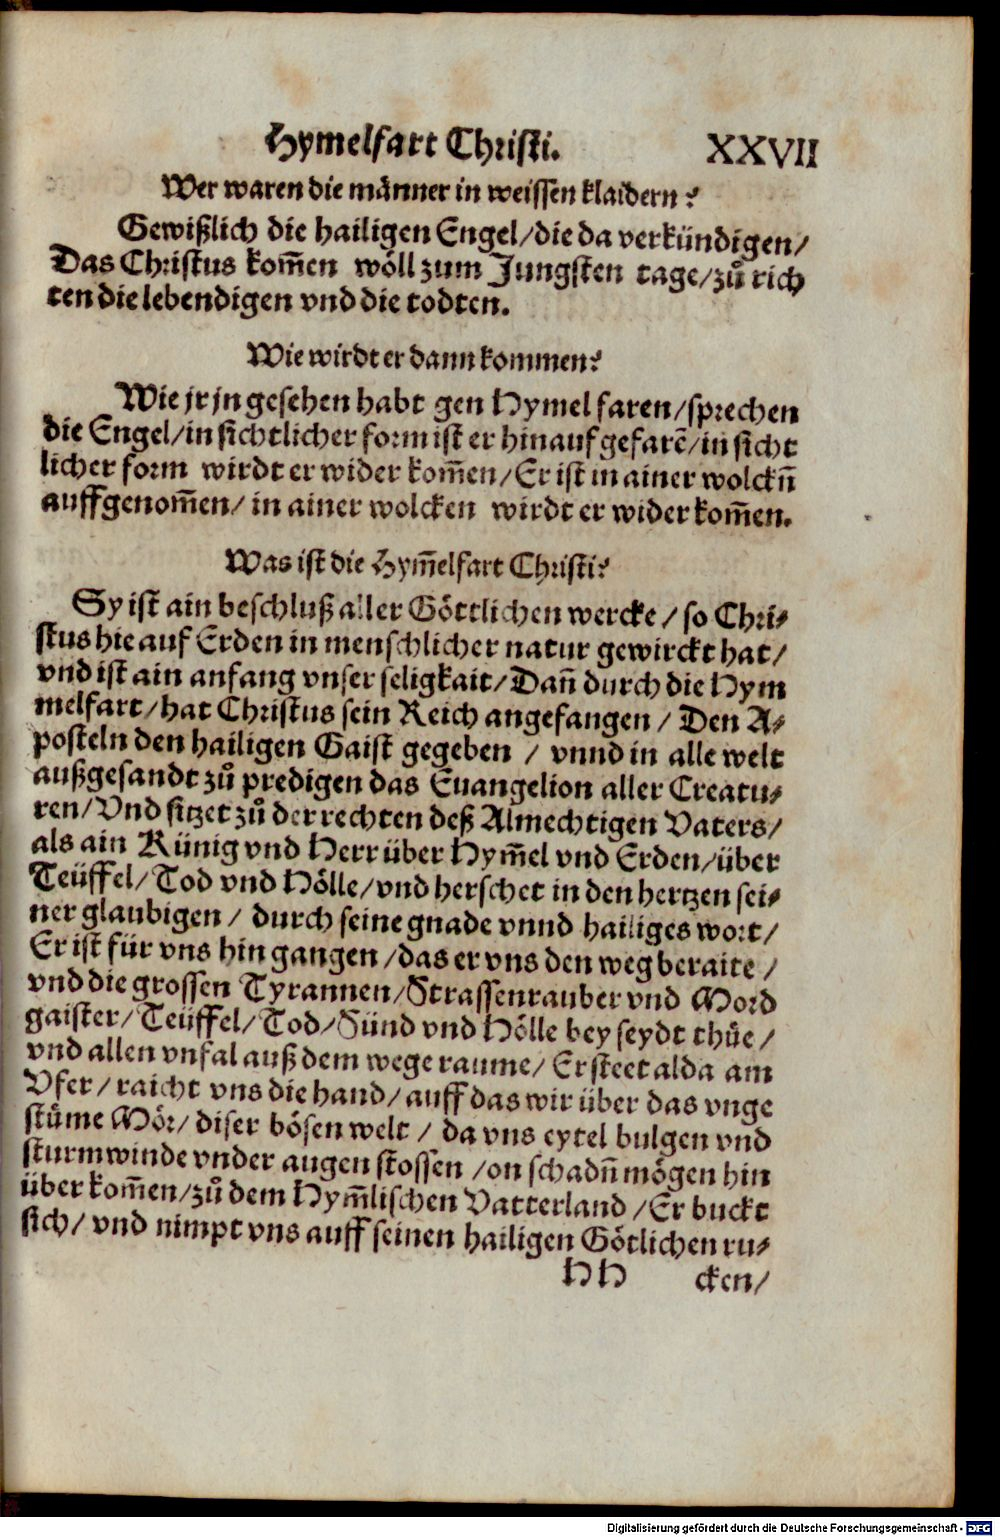 Hymelfart Christi. XXVII
Wer waren die männer in weissen klaidern?
Gewißlich die hailigen Engel/die da verkündigen/
Das Christus kom̄en wöll zum Jungsten tage/zů rich
ten die lebendigen vnd die todten.
Wie wirdt er dann kommen?
Wie jr jn gesehen habt gen Hymel faren/sprechen
die Engel/in sichtlicher form ist er hinauf gefarē/in sicht
licher form wirdt er wider kom̄en/Er ist in ainer wolckn̄
auffgenom̄en/ in ainer wolcken wirdt er wider kom̄en.
Was ist die Hym̄elfart Christi?
Sy ist ain beschluß aller Göttlichen wercke/ so Chri-
stus hie auf Erden in menschlicher natur gewirckt hat/
vnd ist ain anfang vnser seligkait/Dan̄ durch die Hym
melfart/hat Christus sein Reich angefangen/ Den A-
posteln den hailigen Gaist gegeben / vnnd in alle welt
außgesandt zů predigen das Euangelion aller Creatu-
ren/Vnd sitzet zů der rechten deß Almechtigen Vaters/
als ain Künig vnd Herr über Hym̄el vnd Erden/über
Teüffel/Tod vnd Hölle/vnd herschet in den hertzen sei-
ner glaubigen/ durch seine gnade vnnd hailiges wort/
Er ist für vns hin gangen/das er vns den weg beraite/
vnd die grossen Tyrannen/Strassenrauber vnd Mord
gaister/Teüffel/Tod/Sünd vnd Hölle bey seydt thüe/
vnd allen vnfal auß dem wege raume/ Er steet alda am
Vfer/raicht vns die hand/auff das wir über das vnge
stüme Mör/ diser bösen welt / da vns eytel bulgen vnd
sturmwinde vnder augen stossen/on schadn̄ mögen hin
über kom̄en/zů dem Hym̄lischen Vatterland/Er buckt
sich/ vnd nimpt vns auff seinen hailigen Götlichen ru-
HH cken/
Digitalisierung gefördert durch die Deutsche Forschungsgemeinschaft - DFG